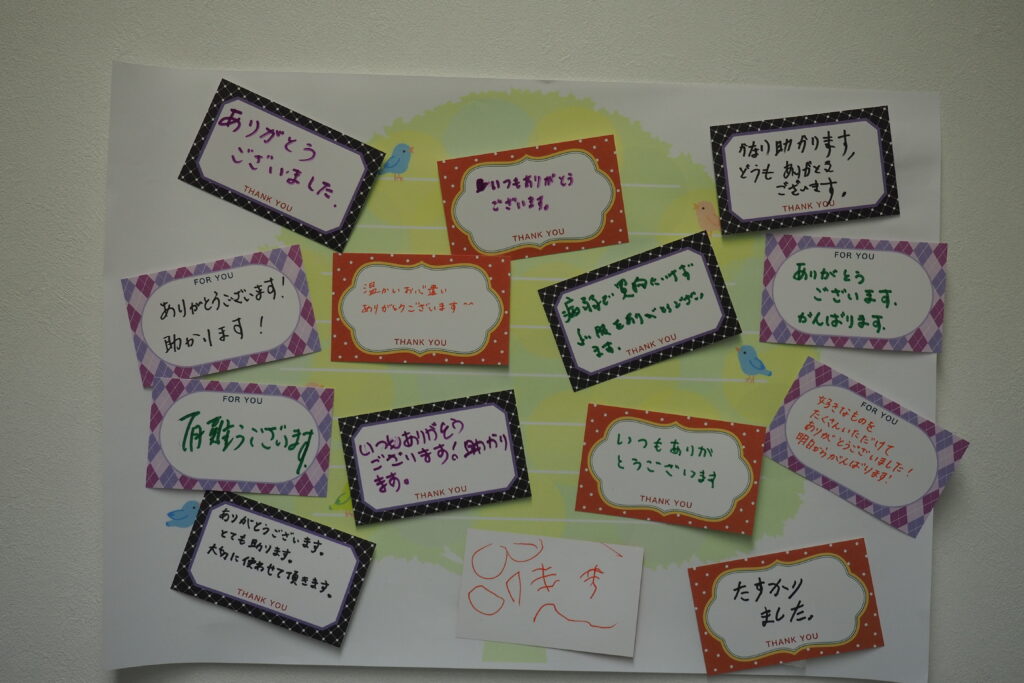 ありがとう
ございました.
THANK YOU
いつもありがとう
ございます。
THANK YOU
かなり助かります,
どうも ありがとう
ございます。
THANK YOU
FOR YOU
ありがとうございます!
助かります!
温かいお心遣い
ありがとうございます^^
THANK YOU
病弱で
ます。
THANK YOU
FOR YOU
ありがとう
ございます.
がんばります.
FOR YOU
有難うございます
いつもありがとう
ございます!助かり
ます。
THANK YOU
いつもありが
とうございます
THANK YOU
FOR YOU
好きなものを
たくさんいただけて
ありがとうございました!
明日からがんばります!
ありがとうございます。
とても助ります。
大切に使わせて頂きます。
THANK YOU
たすかり
ました。
THANK YOU